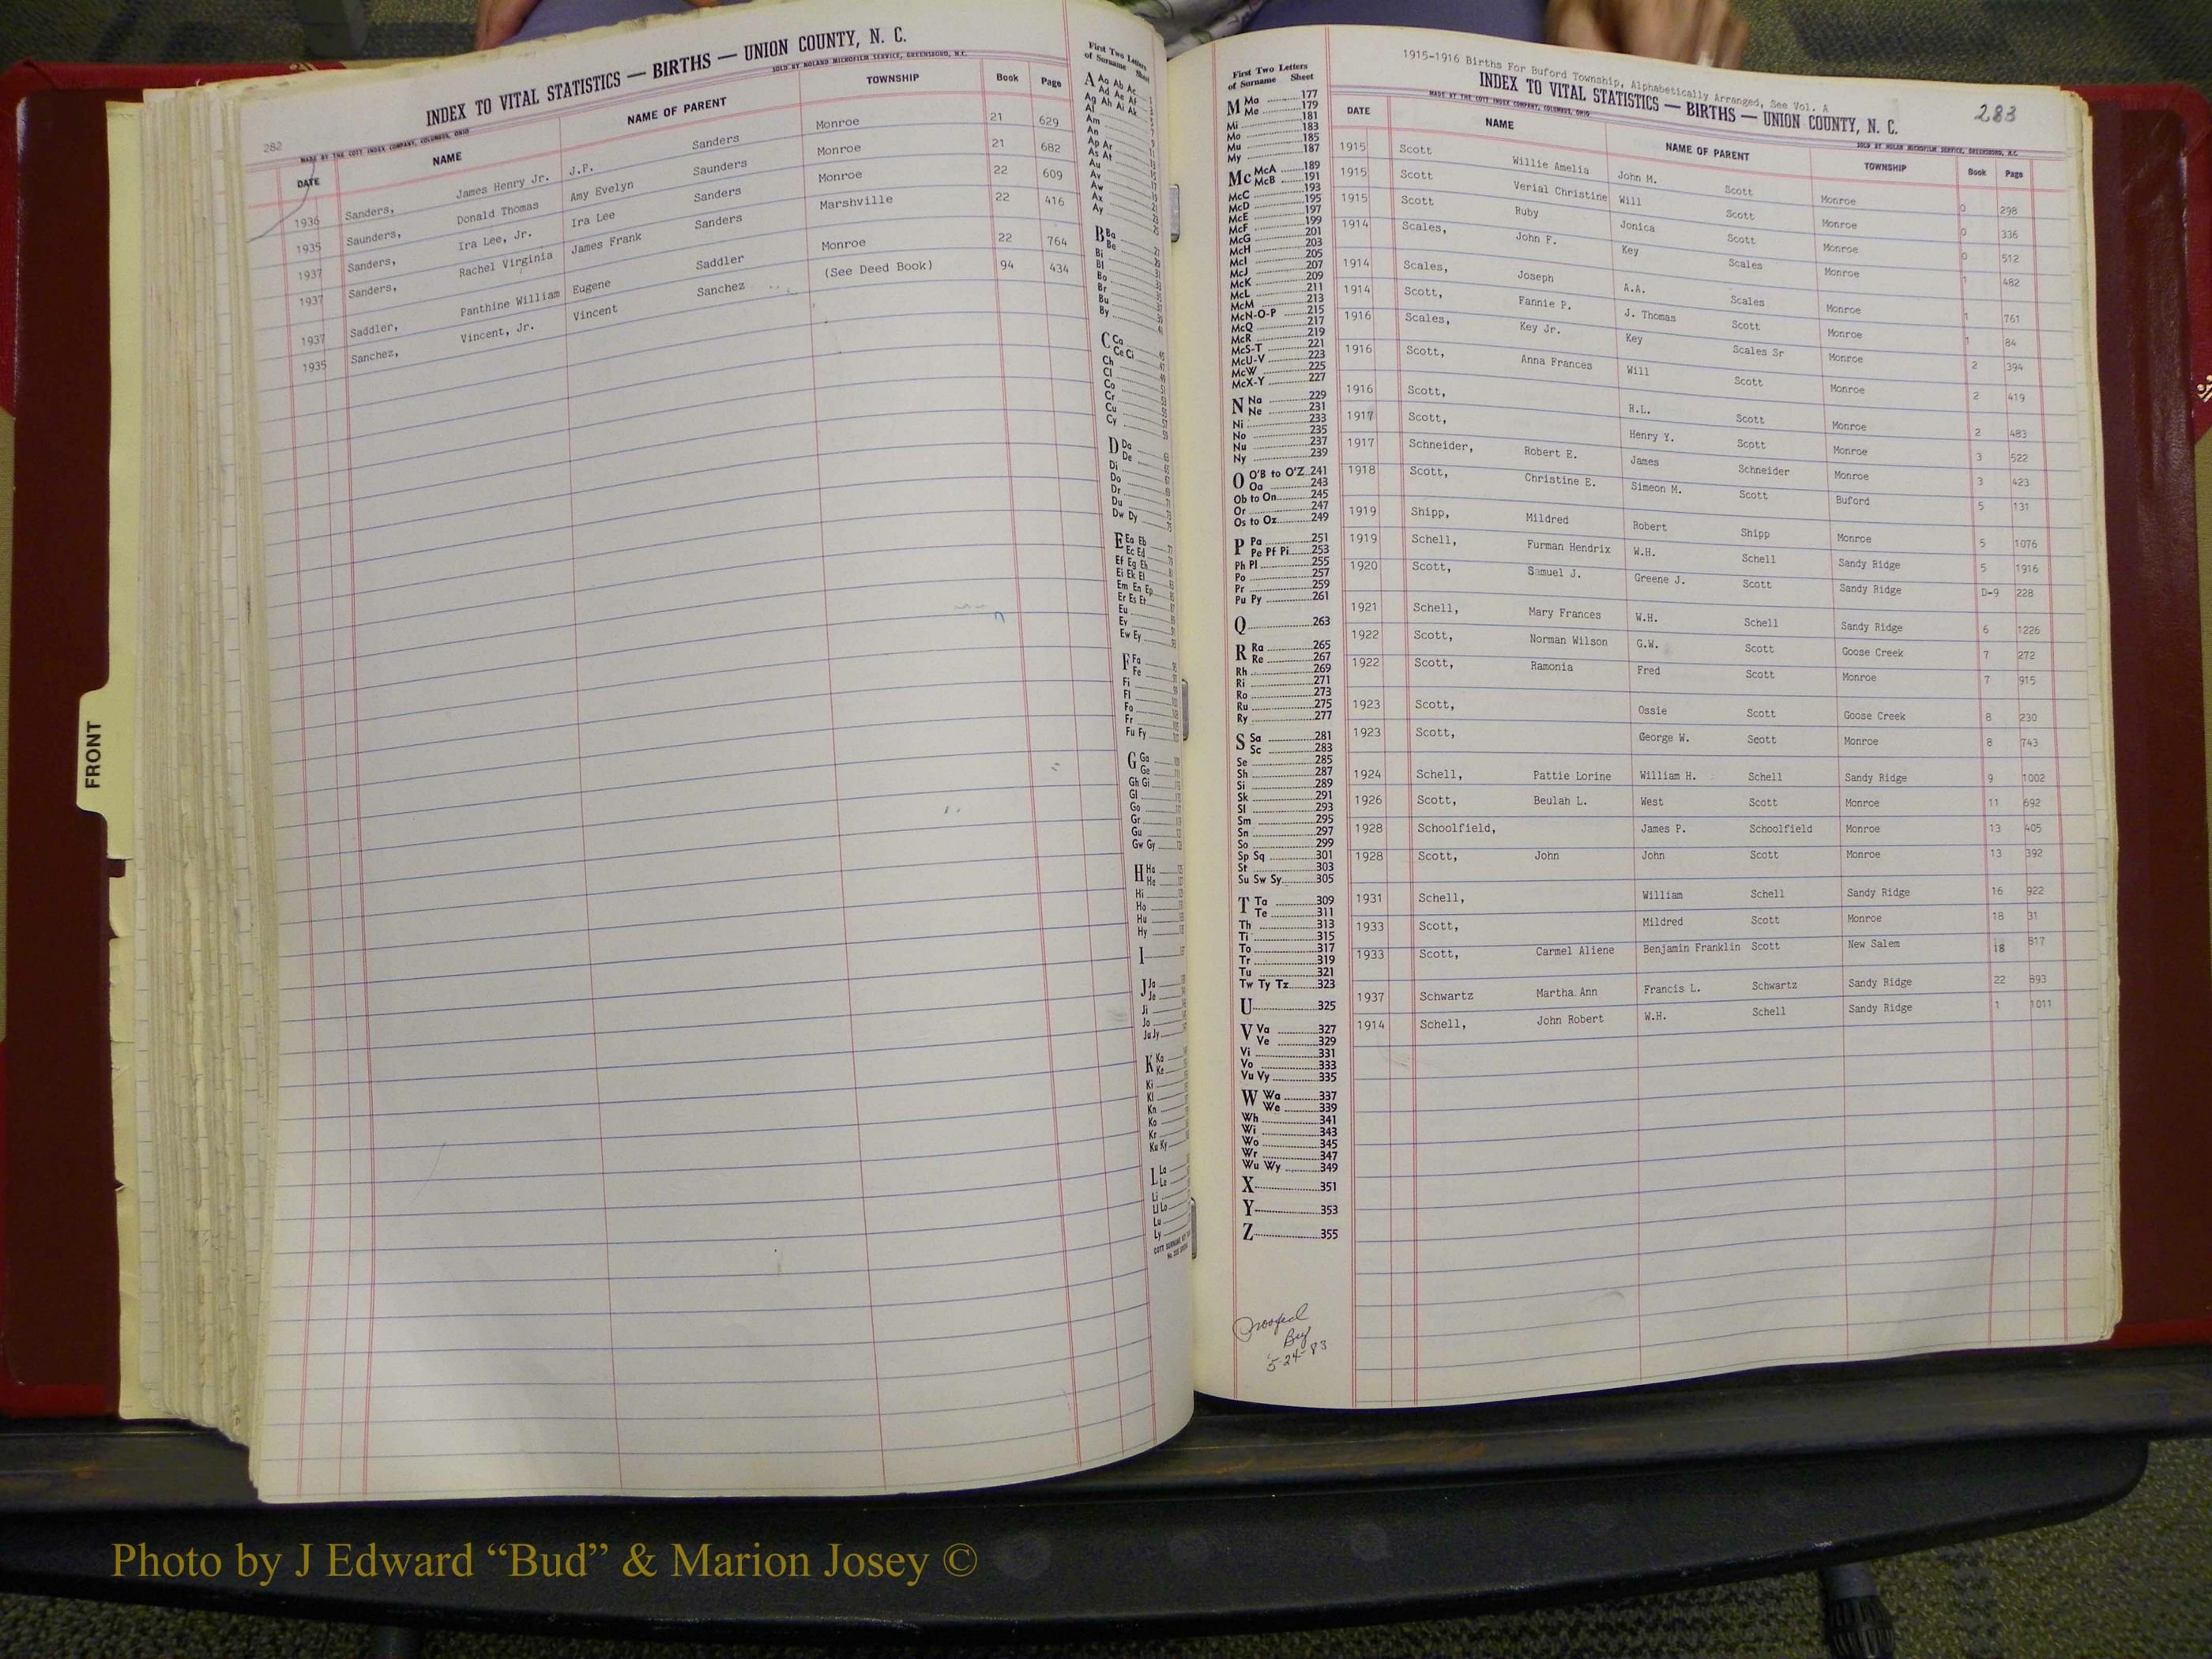 282
INDEX TO VITAL STATISTICS — BIRTHS — UNION COUNTY, N. C.
MADE BY THE COTT INDEX COMPANY, COLUMBUS, OHIO SOLD BY NOLAND MICROFILM SERVICE, GREENSBORO, N.C.
DATE NAME NAME OF PARENT TOWNSHIP Book Page
1936 Sanders, James Henry Jr. J.P. Sanders Monroe 21 629
1935 Saunders, Donald Thomas Amy Evelyn Saunders Monroe 21 682
1937 Sanders, Ira Lee, Jr. Ira Lee Sanders Monroe 22 609
1937 Sanders, Rachel Virginia James Frank Sanders Marshville 22 416
1937 Saddler, Panthine William Eugene Saddler Monroe 22 764
1935 Sanchez, Vincent, Jr. Vincent Sanchez (See Deed Book) 94 434
First Two Letters
of Surname Sheet
A Aa Ab Ac
Ad Ae Af
Ag Ah Ai Ak
Al
Am
An
Ap Ar
As At
Au
Av
Aw
Ax
Ay
B Ba
Be
Bi
Bl
Bo
Br
Bu
By
C Ca
Ce Ci
Ch
Cl
Co
Cr
Cu
Cy
D Da
De
Di
Do
Dr
Du
Dw Dy
E Ea Eb
Ec Ed
Ef Eg Eh
Ei Ek El
Em En Ep
Er Es Et
Eu
Ev
Ew Ey
F Fa
Fe
Fi
Fl
Fo
Fr
Fu Fy
G Ga
Ge
Gh Gi
Gl
Go
Gr
Gu
Gw Gy
H Ha
He
Hi
Ho
Hu
Hy
I
J Ja
Je
Ji
Jo
Ju Jy
K Ka
Ke
Ki
Kl
Kn
Ko
Kr
Ku Ky
L La
Le
Li
Ll Lo
Lu
Ly
FRONT
First Two Letters
of Surname Sheet
M Ma 177
Me 179
Mi 181
Mo 183
Mu 185
My 187
Mc McA 189
McB 191
McC 193
McD 195
McE 197
McF 199
McG 201
McH 203
McI 205
McJ 207
McK 209
McL 211
McM 213
McN-O-P 215
McQ 217
McR 219
McS-T 221
McU-V 223
McW 225
McX-Y 227
N Na 229
Ne 231
Ni 233
No 235
Nu 237
Ny 239
O O'B to O'Z 241
Oa 243
Ob to On 245
Or 247
Os to Oz 249
P Pa 251
Pe Pf Pi 253
Ph Pl 255
Po 257
Pr 259
Pu Py 261
Q 263
R Ra 265
Re 267
Rh 269
Ri 271
Ro 273
Ru 275
Ry 277
S Sa 281
Sc 283
Se 285
Sh 287
Si 289
Sk 291
Sl 293
Sm 295
Sn 297
So 299
Sp Sq 301
St 303
Su Sw Sy 305
T Ta 309
Te 311
Th 313
Ti 315
To 317
Tr 319
Tu 321
Tw Ty Tz 323
U 325
V Va 327
Ve 329
Vi 331
Vo 333
Vu Vy 335
W Wa 337
We 339
Wh 341
Wi 343
Wo 345
Wr 347
Wu Wy 349
X 351
Y 353
Z 355
Proofed
By
5-24-83
1915-1916 Births For Buford Township, Alphabetically Arranged, See Vol. A
INDEX TO VITAL STATISTICS — BIRTHS — UNION COUNTY, N. C. 283
MADE BY THE COTT INDEX COMPANY, COLUMBUS, OHIO SOLD BY NOLAN MICROFILM SERVICE, GREENSBORO, N.C.
DATE NAME NAME OF PARENT TOWNSHIP Book Page
1915 Scott Willie Amelia John M. Scott Monroe 0 298
1915 Scott Verial Christine Will Scott Monroe 0 336
1915 Scott Ruby Jonica Scott Monroe 0 512
1914 Scales, John F. Key Scales Monroe 1 482
1914 Scales, Joseph A.A. Scales Monroe 1 761
1914 Scott, Fannie P. J. Thomas Scott Monroe 1 84
1916 Scales, Key Jr. Key Scales Sr Monroe 2 394
1916 Scott, Anna Frances Will Scott Monroe 2 419
1916 Scott, R.L. Scott Monroe 2 483
1917 Scott, Henry Y. Scott Monroe 3 522
1917 Schneider, Robert E. James Schneider Monroe 3 423
1918 Scott, Christine E. Simeon M. Scott Buford 5 131
1919 Shipp, Mildred Robert Shipp Monroe 5 1076
1919 Schell, Furman Hendrix W.H. Schell Sandy Ridge 5 1916
1920 Scott, Samuel J. Greene J. Scott Sandy Ridge D-9 228
1921 Schell, Mary Frances W.H. Schell Sandy Ridge 6 1226
1922 Scott, Norman Wilson G.W. Scott Goose Creek 7 272
1922 Scott, Ramonia Fred Scott Monroe 7 915
1923 Scott, Ossie Scott Goose Creek 8 230
1923 Scott, George W. Scott Monroe 8 743
1924 Schell, Pattie Lorine William H. Schell Sandy Ridge 9 1002
1926 Scott, Beulah L. West Scott Monroe 11 692
1928 Schoolfield, James P. Schoolfield Monroe 13 405
1928 Scott, John John Scott Monroe 13 392
1931 Schell, William Schell Sandy Ridge 16 922
1933 Scott, Mildred Scott Monroe 18 31
1933 Scott, Carmel Aliene Benjamin Franklin Scott New Salem 18 817
1937 Schwartz Martha Ann Francis L. Schwartz Sandy Ridge 22 893
1914 Schell, John Robert W.H. Schell Sandy Ridge 1 1011
Photo by J Edward “Bud” & Marion Josey ©